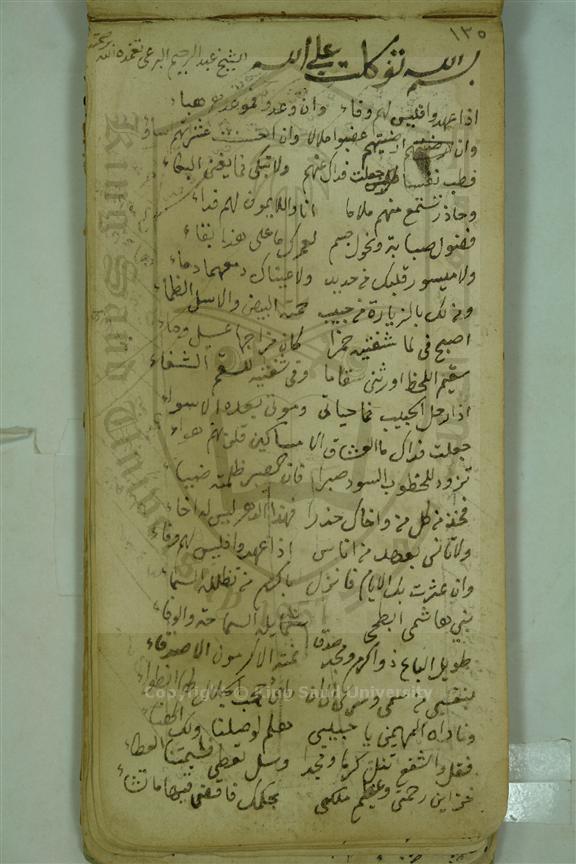 ١٣٥
بسم الله توكلت على الله
الشيخ عبد الرحيم البرعي تغمده الله برحمته
اذا عهدوا فليس لهم وفاء وان وعدوا فموعدهم هباء
وان ارضيتهم غضبوا ملالا وان احسنت عشرتهم
فطب نفسا جعلت فداك عنهم ولا تبكي فما يغني البكاء
وحاذر تستمع منهم ملاما انا واللايمون لهم فداء
ففنون صبابة ونحول جسم لعمرك ما على هذا بقاء
ولا ميسور قلبك من حديد ولا عيناك دمعهما دماء
ومن لك بالزيارة من حبيب حمته البيض والاسل الظماء
اصبح في لما شفتيه خمرا كان مزاجها عسل وماء
سقيم اللحظ اورثني سقاما وفي شفتيه للسقم الشفاء
اذا رحل الحبيب فما حياتي وموتي بعده الا سواء
جعلت فداك ما العشاق الا مساكين قلوبهم هواء
تزود للخطوب السود صبرا فان الصبر ظلمته ضياء
فخذ من كل من واخاك حذرا فهذا الدهر ليس له اخاء
ولا تانس بعهد من اناس اذا عهدوا فليس لهم وفاء
وان عثرت بك الايام فانزل باكرم من تظلله السماء
نبي هاشمي ابطحي شمايله السماحة والوفاء
طويل الباع ذو كرم ومجد صدقا نمته الاكرمون الاصدقاء
بنفسي من سمى وسرى
وناداه المهيمن يا حبيبي هلم لوصلنا ولك الهنا
فقل واشفع تنل كرما ومجدا وسل تعطى فشيمتنا العطاء
خزاين رحمتي وعظيم ملكي بحكمك فاقض فيها ما تشاء
Copyright © King Saud University
King Saud University
1957